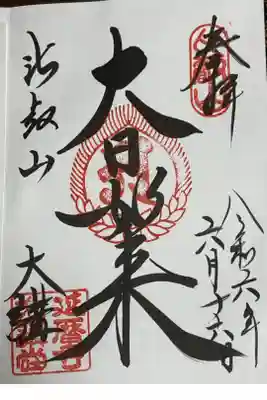 奉拝
令和六年
六月十六日
大日如来
比叡山
大講堂
延暦寺